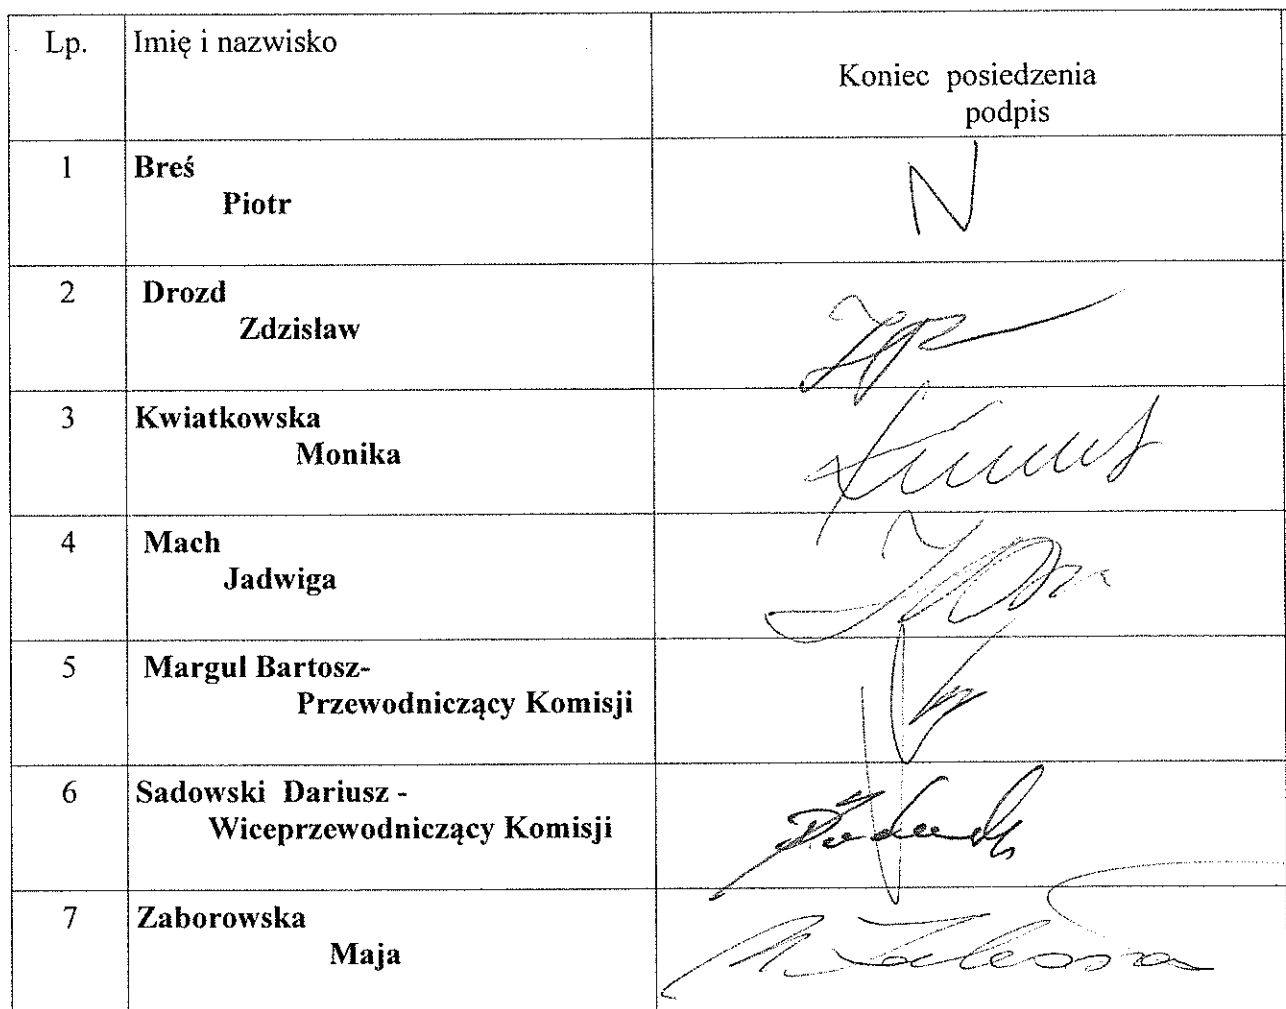 Lp. Imię i nazwisko
Koniec posiedzenia
podpis
1 Breś N
Piotr
2 Drozd
Zdzisław
3 Kwiatkowska
Monika
4 Mach
Jadwiga
5 Margul Bartosz-
Przewodniczący Komisji
6 Sadowski Dariusz -
Wiceprzewodniczący Komisji
7 Zaborowska
Maja